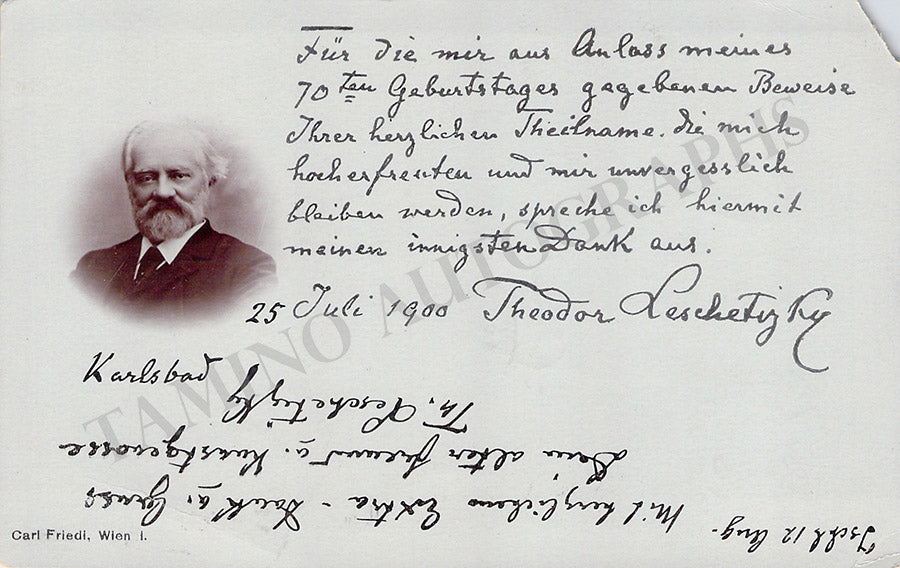 Für die mir aus Anlass meines
70ten Geburtstages gegebenen Beweise
Ihrer herzlichen Theilname. die mich
hocherfreuten und mir unvergesslich
bleiben werden, spreche ich hiermit
meinen innigsten Dank aus.
25 Juli 1900 Theodor Leschetizky
Karlsbad
Ischl 12 Aug.
Mit herzlichem Extra-Dank u. Gruss
Dein alter Freund u. Kunstgenosse
Th. Leschetizky
Carl Friedl, Wien I.
TAMINO AUTOGRAPHS